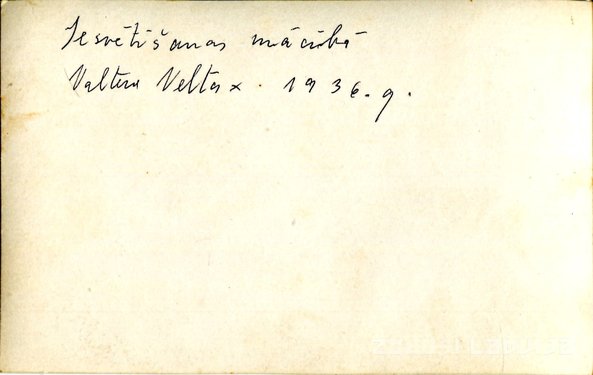 Iesvētīšanas mācībā
Valtera Veltas x. 1936. g.